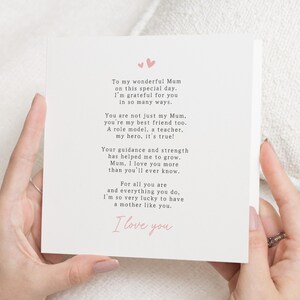 To my wonderful Mum
on this special day.
I'm grateful for you
in so many ways.
You are not just my Mum,
you're my best friend too.
A role model, a teacher,
my hero, it's true!
Your guidance and strength
has helped me to grow.
Mum, I love you more
than you'll ever know.
For all you are
and everything you do,
I'm so very lucky to have
a mother like you.
I love you